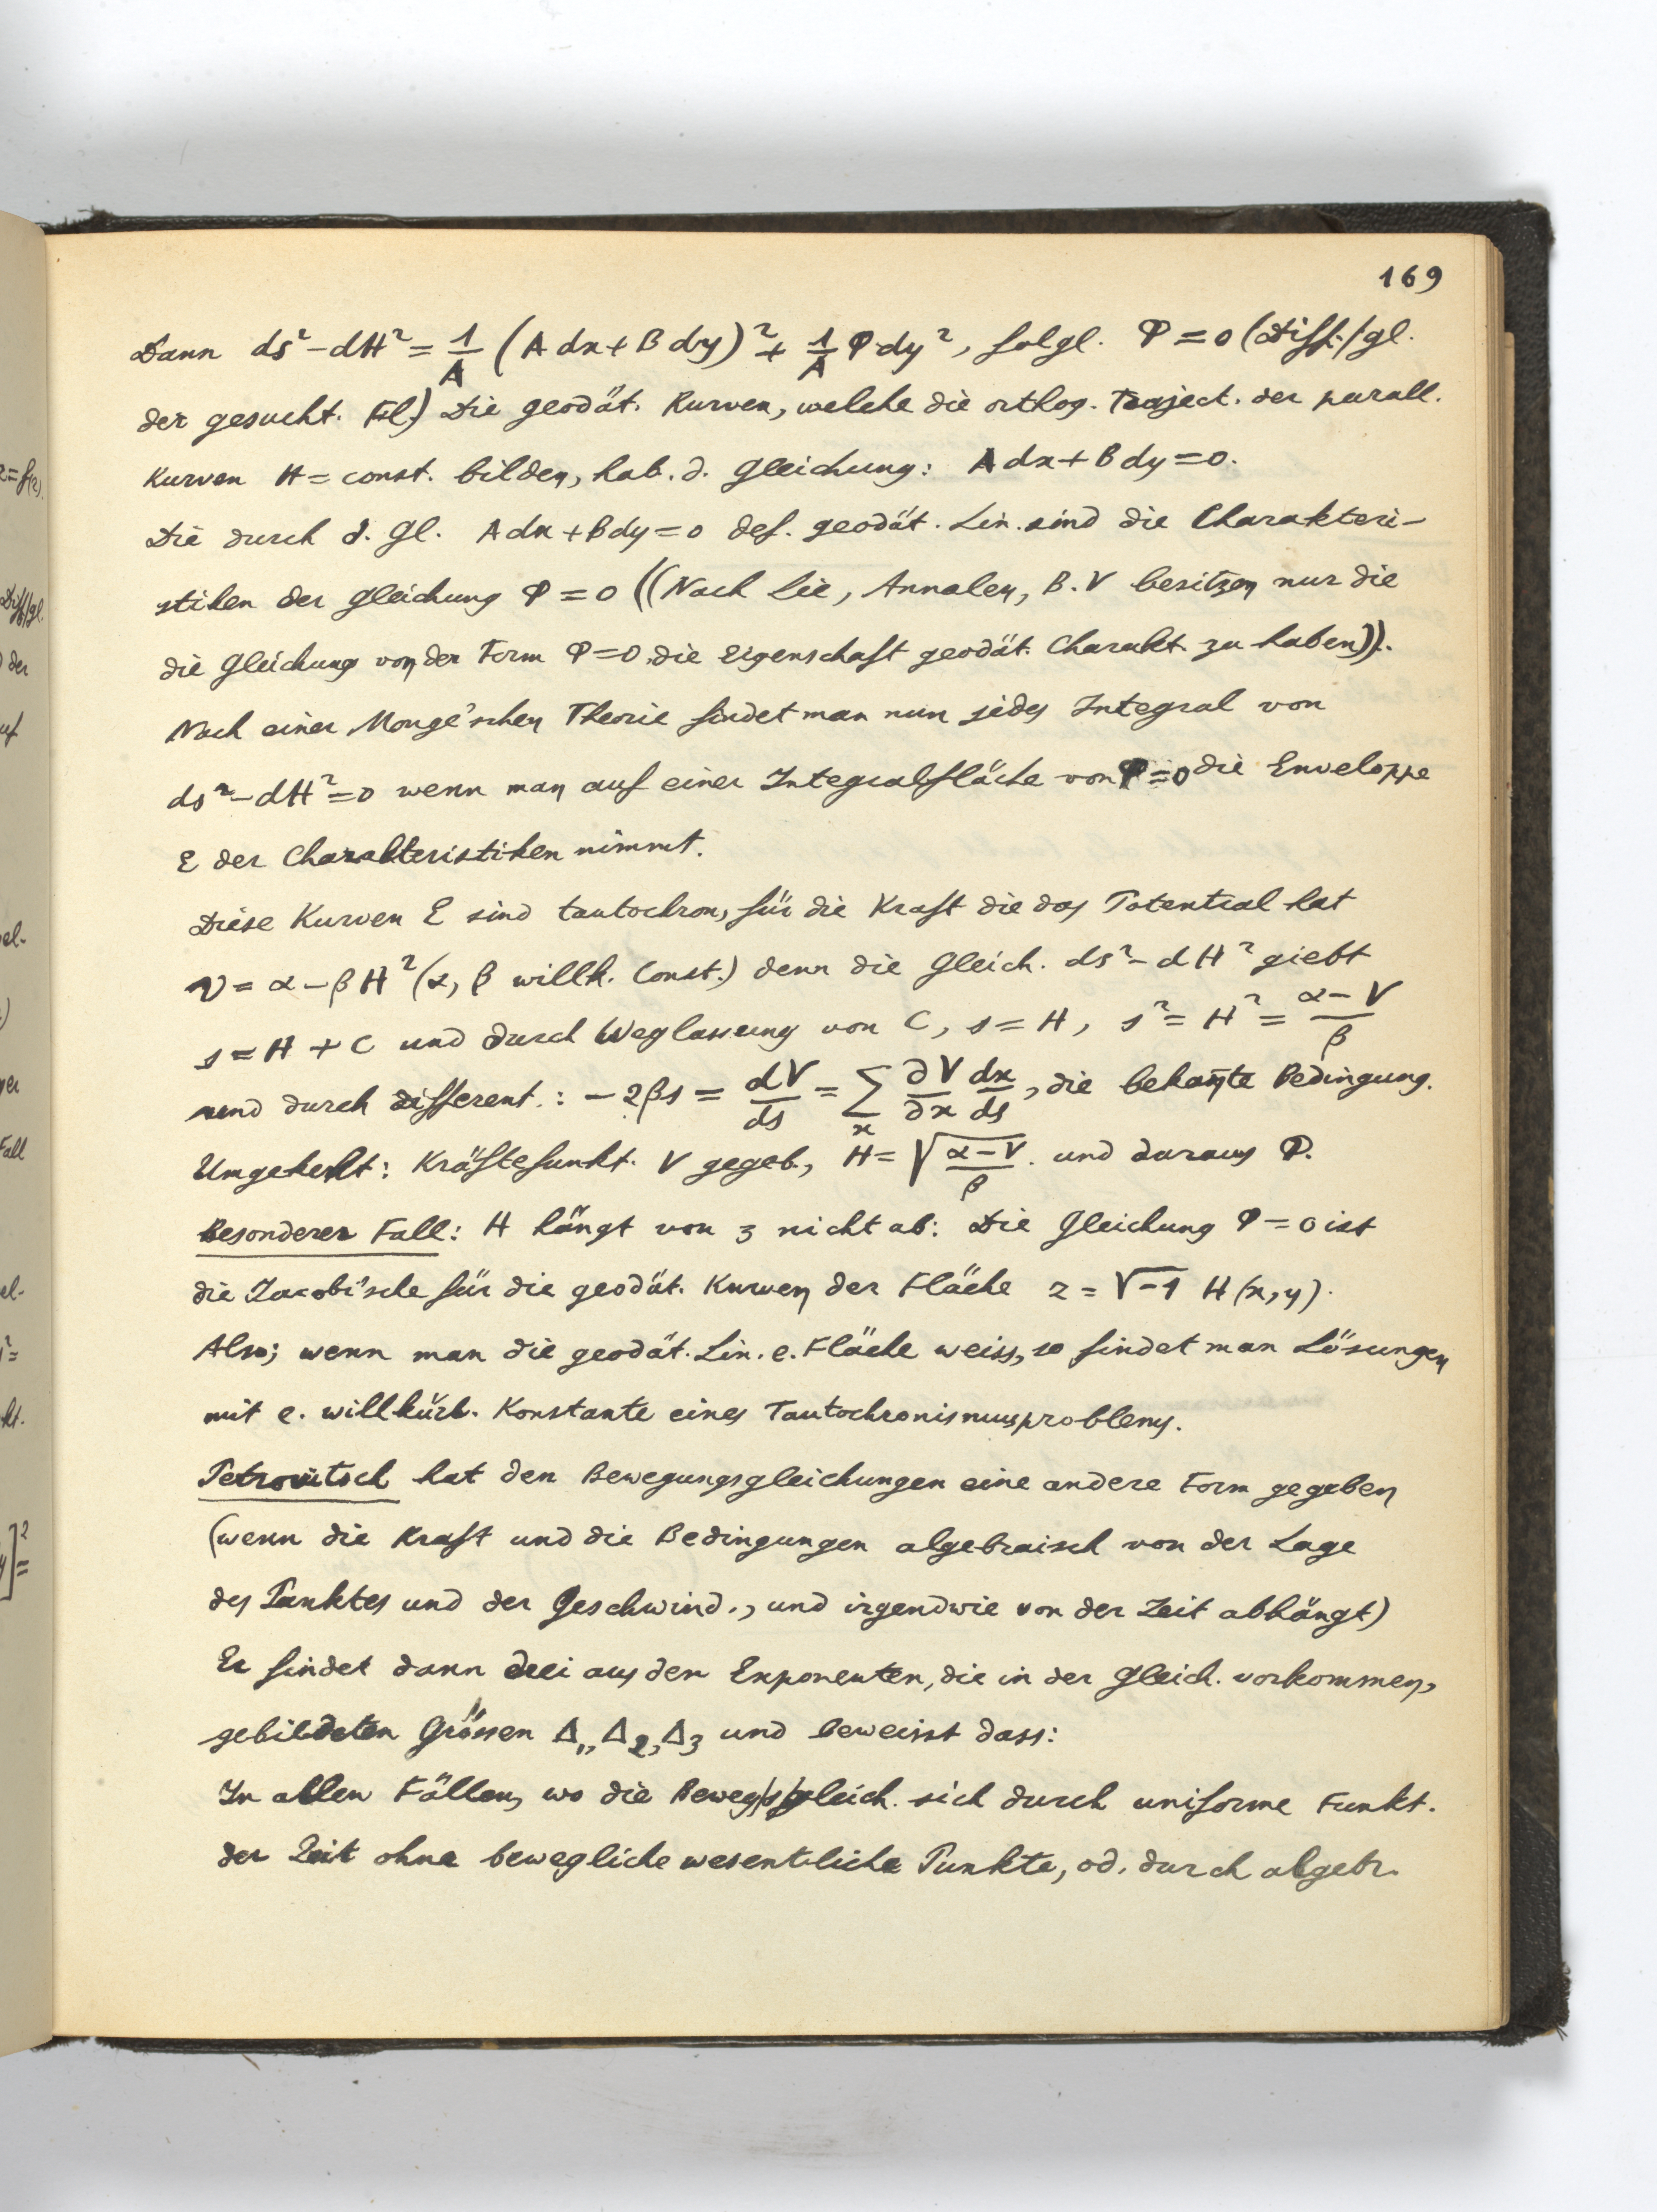 169
Dann ds² - dH² = 1/A (A dx + B dy)² + 1/A Φ dy², folgl. Φ = 0 (Diff./gl.
der gesucht. Fl.) Die geodät. Kurven, welche die orthog. Traject. der parall.
Kurven H = const. bilden, hab. d. Gleichung: A dx + B dy = 0.
Die durch d. Gl. A dx + B dy = 0 def. geodät. Lin. sind die Charakteri-
stiken der Gleichung Φ = 0 ((Nach Lie, Annalen, B. V besitzen nur die
die Gleichung von der Form Φ = 0 die Eigenschaft geodät. Charakt. zu haben)).
Nach einer Monge'schen Theorie findet man nun jedes Integral von
ds² - dH² = 0 wenn man auf einer Integralfläche von Φ = 0 die Enveloppe
E der Charakteristiken nimmt.
Diese Kurven E sind tautochron, für die Kraft die das Potential hat
V = α - βH² (α, β willk. Const.) denn die Gleich. ds² - dH² giebt
s = H + C und durch Weglassung von C, s = H, s² = H² = (α - V)/β
und durch different.: - 2βs = dV/ds = Σ_x ∂V/∂x dx/ds, die bekan̄te Bedingung.
Umgekehrt: Kräftefunkt. V gegeb., H = √(α - V)/β. und daraus Φ.
Besonderer Fall: H hängt von z nicht ab: Die Gleichung Φ = 0 ist
die Jacobi'sche für die geodät. Kurven der Fläche z = √-1 H(x, y).
Also; wenn man die geodät. Lin. e. Fläche weiss, so findet man Lösungen
mit e. willkürl. Konstante eines Tautochronismusproblems.
Petrovitsch hat den Bewegungsgleichungen eine andere Form gegeben
(wenn die Kraft und die Bedingungen algebraisch von der Lage
des Punktes und der Geschwind., und irgendwie von der Zeit abhängt)
Er findet dann drei aus den Exponenten, die in der Gleich. vorkommen,
gebildeten Grössen Δ₁, Δ₂, Δ₃ und beweisst dass:
In allen Fällen, wo die Beweg/s/gleich. sich durch uniforme Funkt.
der Zeit ohne bewegliche wesentliche Punkte, od. durch algebr.